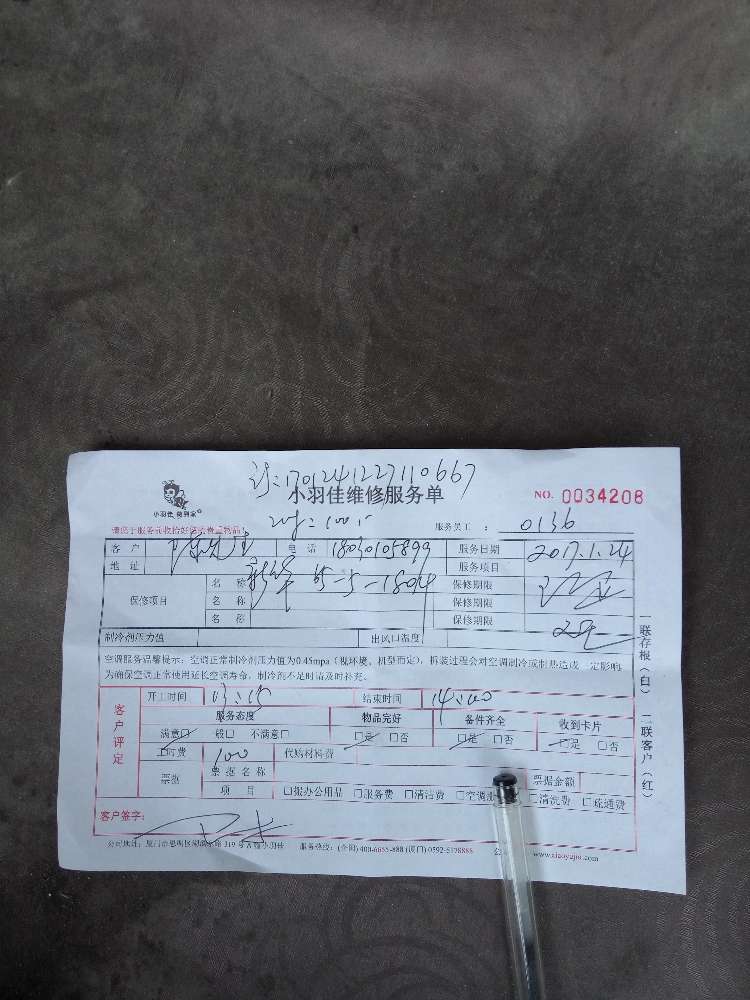 1701241227110667
小羽佳维修服务单
NO. 0034208
小羽佳
请您于服务前收拾好您的贵重物品!
服务员工 : 0136
客 户 陈先生 电 话 18030105899 服务日期 2017.1.24
地 址 65-5-1804 服务项目
保修项目 名 称 保修期限
名 称 保修期限
名 称 保修期限
制冷剂压力值 出风口温度
空调服务温馨提示:空调正常制冷剂压力值为0.45mpa(视环境、机型而定),拆装过程会对空调制冷或制热造成一定影响
为确保空调正常使用延长空调寿命,制冷剂不足时请及时补充。
客户评定
开工时间 13:15 结束时间 14:00
服务态度 物品完好 备件齐全 收到卡片
满意□ 一般□ 不满意□ □是 □否 □是 □否 □是 □否
工时费 100 代购材料费
票据 票据名称 票据金额
项 目 □报办公用品 □服务费 □清洁费 □空调 □清洗费 □疏通费
客户签字:
一联存根(白) 二联客户(红)
公司地址:厦门市思明区 319号 小羽佳 服务热线:(全国)400-6655-888 (厦门)0592-5178888 www.xiaoyujia.com